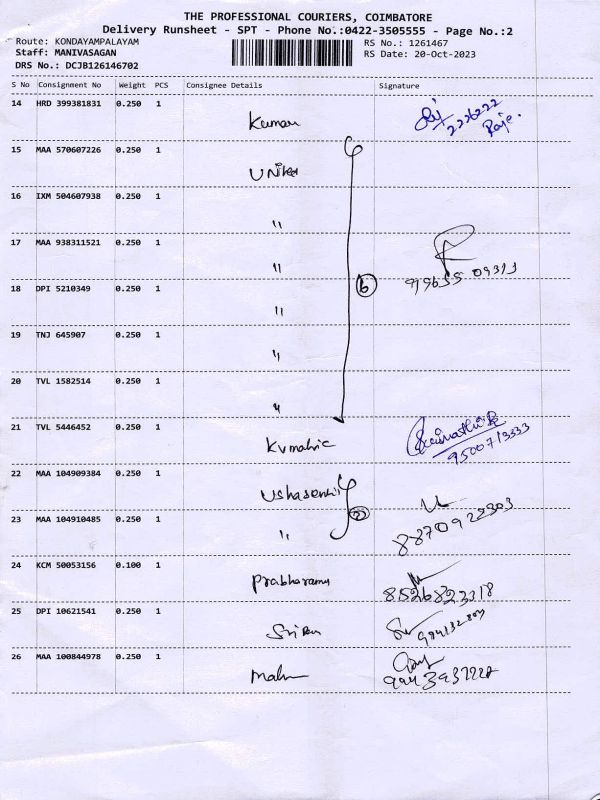 THE PROFESSIONAL COURIERS, COIMBATORE
Delivery Runsheet - SPT - Phone No.:0422-3505555 - Page No.:2
Route: KONDAYAMPALAYAM RS No.: 1261467
Staff: MANIVASAGAN RS Date: 20-Oct-2023
DRS No.: DCJB126146702
S No Consignment No Weight PCS Consignee Details Signature
14 HRD 399381831 0.250 1 Kumar
15 MAA 570607226 0.250 1
16 IXM 504607938 0.250 1 "
17 MAA 938311521 0.250 1 "
18 DPI 5210349 0.250 1 " 6
19 TNJ 645907 0.250 1 "
20 TVL 1582514 0.250 1 "
21 TVL 5446452 0.250 1
9500713333
22 MAA 104909384 0.250 1
23 MAA 104910485 0.250 1 " 2
24 KCM 50053156 0.100 1
25 DPI 10621541 0.250 1
26 MAA 100844978 0.250 1